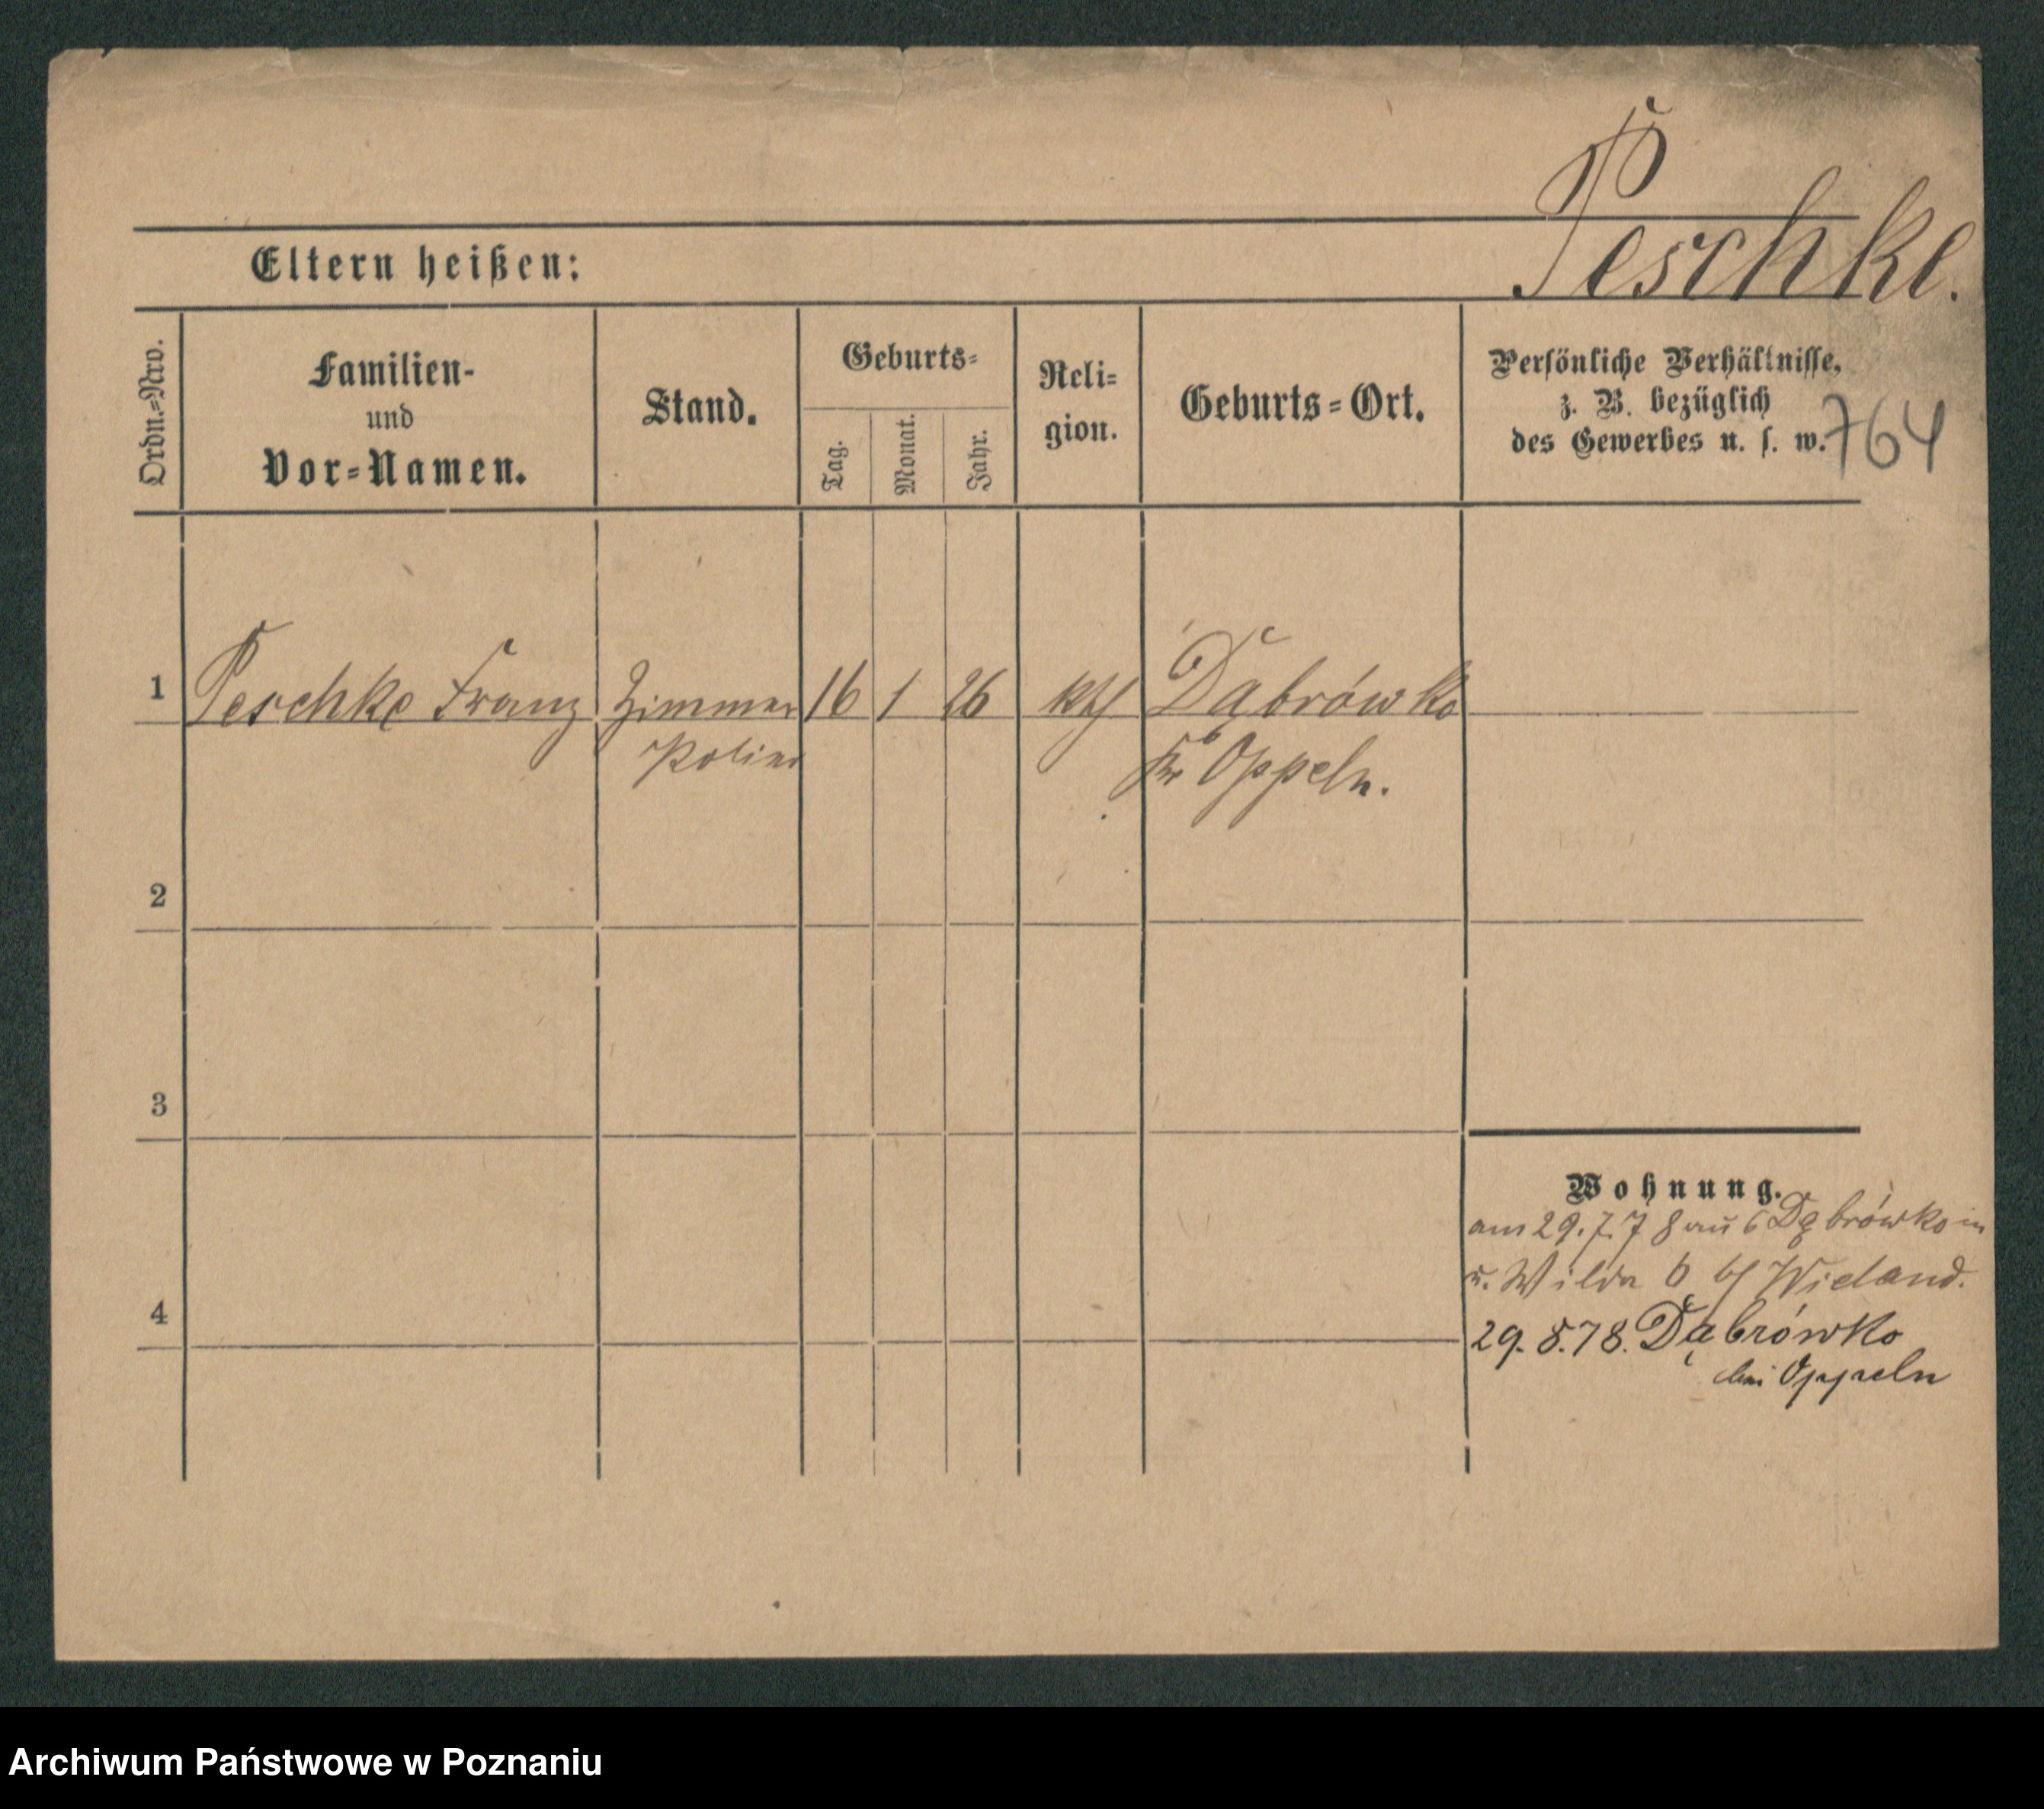 P
Peschke.
Eltern heißen:
Ordn.=Nro.
Familien-
und
Vor=Namen.
Stand.
Geburts=
Tag.
Monat.
Jahr.
Reli=
gion.
Geburts=Ort.
Persönliche Verhältnisse,
z. B. bezüglich
des Gewerbes u. s. w.
764
1 Peschke Franz Zimmer 16 1 26 kth Dąbrówko
Polier
Kr Oppeln.
2
3
Wohnung.
am 29.7.78 aus Dąbrówko in
u. Wilda 6 bei Wieland.
4
29.8.78. Dąbrówko
bei Oppeln
Archiwum Państwowe w Poznaniu